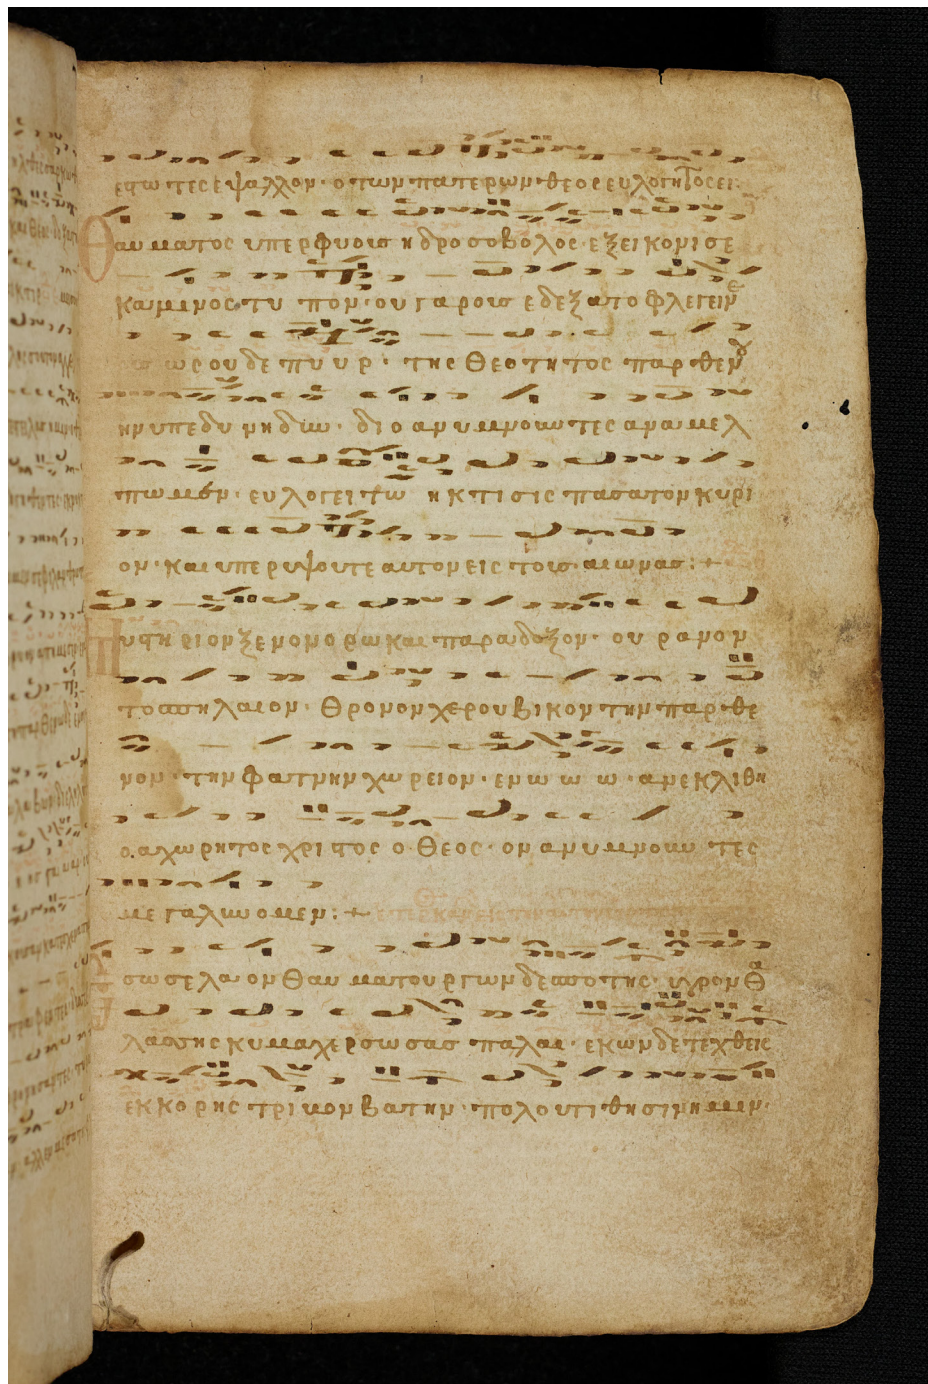 εστωτες εψαλλον · ο των πατερων θεος ευλογητος ει:
Θαυματος υπερφυους η δροσοβολος εξεικονισε
καμινος τυ πον · ου γαρ ους εδεξατο φλεγει νε
ως ουδε πυ υρ · της Θεοτητος παρθενου
ην υπεδυ νηδυν · διο ανυμνουντες αναμελ
πωμεν · ευλογειτω η κτι σις πασα τον κυρι
ον · και υπερυψουτε αυτον εις τους αιωνας : +
Μυστηριον ξενον ορω και παραδοξον · ουρανον
το σπηλαιον · Θρονον χερουβικον την παρθε
νον · την φατνην χωρειον · εν ω ω ω · ανεκλιθη
ο αχωρητος χριστος ο Θεος · ον ανυμνουν τες
μεγαλυνομεν : +
Εσωσε λαον Θαυματουργων δεσποτης · υγρον Θα
λασσης κυμα χερσωσας παλαι · εκων δε τεχθεις
εκ κορης τριβον βατην · πολου τιθησιν ημιν ·